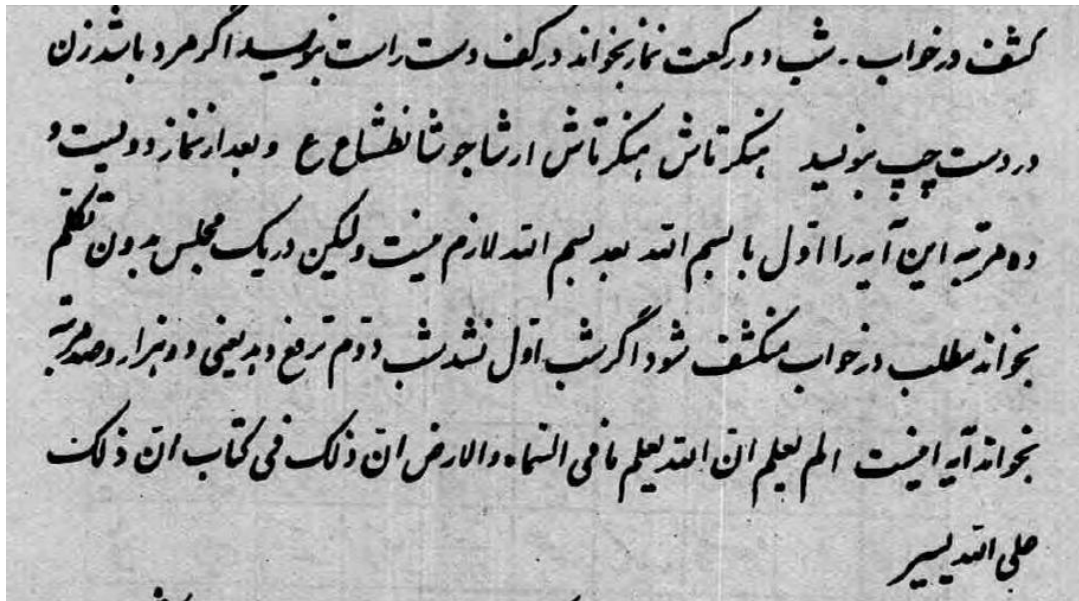 کشف در خواب - شب دو رکعت نماز بخواند در کف دست راست بنویسد اگر مرد باشد زن
در دست چپ بنویسد هنکرتاش هنکرتاش ارشا جوشا نطشاع ع و بعد از نماز دویست و
ده مرتبه این آیه را اول با بسم الله بعد بسم الله لازم نیست ولیکن در یک مجلس بدون تکلم
بخواند مطلب در خواب منکشف شود اگر شب اول نشد شب دوم ترفع دهد یعنی دو هزار و صد مرتبه
بخواند آیه اینست الم یعلم ان الله یعلم ما فی السماء والارض ان ذلک فی کتاب ان ذلک
علی الله یسیر